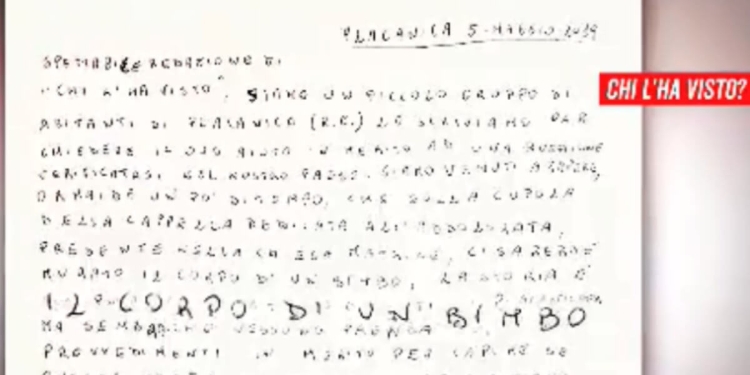 PLACANICA 5-MAGGIO-2019
SPETTABILE REDAZIONE DI
"CHI L'HA VISTO", SIAMO UN PICCOLO GRUPPO DI
CHI L'HA VISTO?
ABITANTI DI PLACANICA (R.C.) LE SCRIVIAMO PER
CHIEDERE IL SUO AIUTO IN MERITO AD UNA QUESTIONE
VERIFICATASI NEL NOSTRO PAESE. SIAMO VENUTI A SAPERE,
ORMAI DA UN PO' DI TEMPO, CHE SULLA CUPOLA
DELLA CAPPELLA DEDICATA ALL'ADDOLORATA,
PRESENTE NELLA CHIESA MATRICE, CI SAREBBE
MURATO IL CORPO DI UN BIMBO, LA STORIA È
IL CORPO DI UN BIMBO
MA SEMBRA NESSUNO PRENDA
PROVVEDIMENTI IN MERITO PER CAPIRE SE